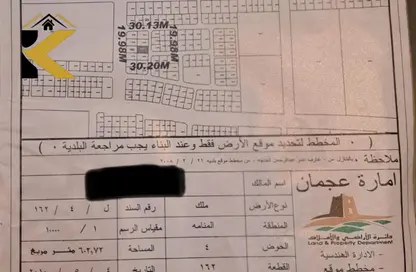 30.13M
19.98M
19.98M
30.20M
( ٠ المخطط لتحديد موقع الأرض فقط وعند البناء يجب مراجعة البلدية ٠ )
ملاحظة
امارة عجمان
اسم المالك
نوع الأرض ملك رقم السند ل / ٤ / ١٦٢
المنطقة المنامه مقياس الرسم ١ / ١٠٠٠٠
الحوض ٤ المساحة ٦٠٢,٧٢ متر مربع
القطعة ١٦٢ التاريخ
دائرة الأراضي والأملاك
Land & Property Department
- الادارة الهندسية
- مخطط موقع